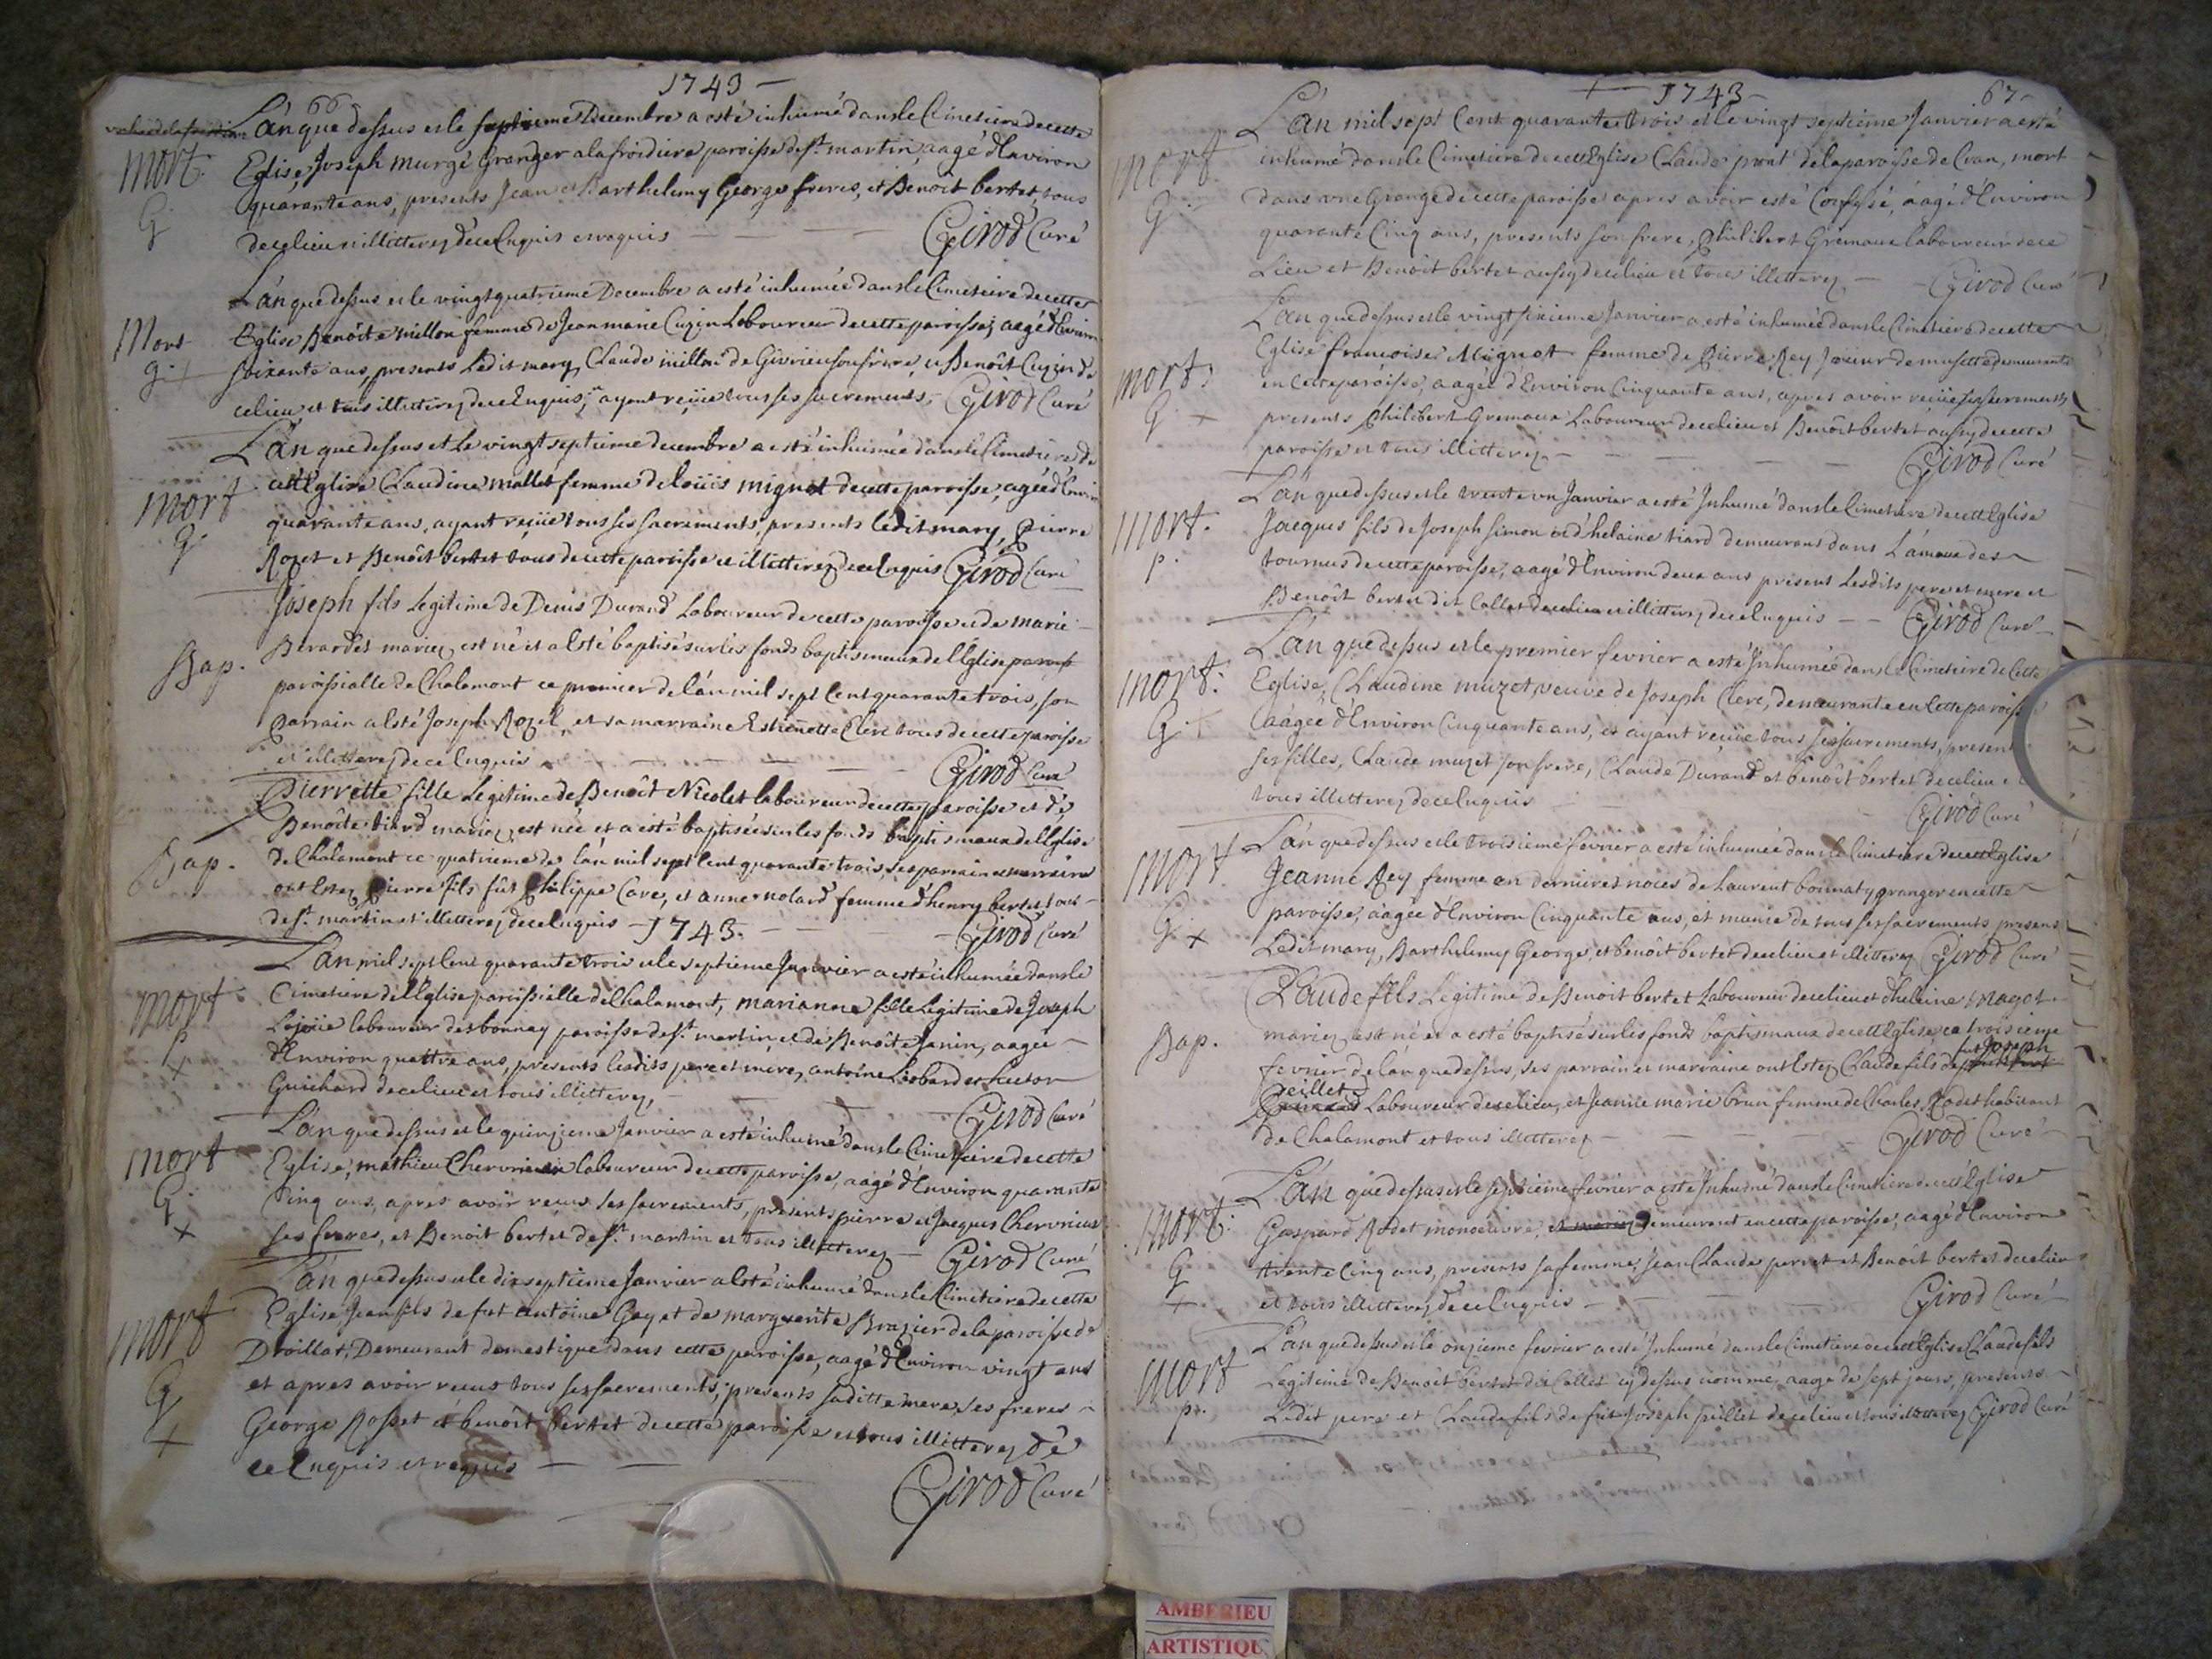 1743
66
L'an que dessus et le septieme Decembre a esté inhumé dans le Cimetiere de cette
mort. Eglise, Joseph murgé Granger a la froidiere paroisse de st. martin, aagé d'Environ
G. quarante ans, presents Jean et Barthelemy George freres, et Benoit bertet, tous
de ce lieu illitterez de ce Enquis et requis Girod Curé
L'an que dessus et le vingt quatrieme Decembre a esté inhumée dans le Cimetiere de cette
Mort Eglise Benôite millon femme de Jean marie Cuzin Laboureur de cette paroisse, aagée d'Environ
g. + soixante ans, presents Ledit mary, Claude millon de Givrieu son frere, et Benoît Cuzin de
ce lieu et tous illitterez de ce Enquis, ayant reçüe tous ses sacrements, Girod Curé
L'an que dessus et Le vingt septieme decembre a esté inhumée dans le Cimetiere de
mort cett Eglise Claudine mallet femme de loüis mignot de cette paroisse, agée d'Environ
g. quarante ans, ayant reçüe tous ses sacrements, presents ledit mary, Pierre
Rozet et Benoît bertet tous de cette paroisse et illitterez de ce Enquis Girod Curé
Joseph fils Legitime de Denis Durand Laboureur de cette paroisse et de marie
Bap. Berardet mariez, est né et a Esté baptisé sur les fonds baptismaux de l'Eglise paroiss
paroissialle de Chalamont ce premier de l'an mil sept Cent quarante trois, son
parrain a Esté Joseph Rozel, et sa marraine Estienette Clere tous de cette paroisse
et illitterez de ce Enquis Girod Curé
Pierrette fille Legitime de Benoît Nicolet laboureur de cette paroisse et de
Benoîte tiard mariez, est née et a esté baptisée sur les fonds baptismaux de l'Eglise
Bap. de Chalamont ce quatrieme de l'an mil sept Cent quarante trois, ses parrain et marraine
ont Estez Pierre fils fût Philippe Cave, et anne nolard femme d'henry bertet tous
de st. martin et illitterez de ce Enquis - 1743. Girod Curé
L'an mil sept Cent quarante trois et le septieme Janvier a esté inhumée dans le
mort Cimetiere de l'Eglise paroissielle de Chalamont, marianne fille Legitime de Joseph
p. Lajoüe laboureur des bonnay paroisse de st. martin et de Benoîte Janin, aagée
+ d'Environ quattre ans, presents lesdits pere et mere, antoine Liobard et
Guichard de ce lieu et tous illitterez, Girod Curé
L'an que dessus et le quinzieme Janvier a esté inhumé dans le Cimetiere de cette
mort Eglise, mathieu Chervrieux laboureur de cette paroisse, aagé d'Environ quarante
G. Cinq ans, apres avoir reçeus ses sacrements, presents pierre et Jacques Chervrieux
+ ses freres, et Benoit bertet de st. martin et tous illitterez Girod Curé
L'an que dessus et le dixseptieme Janvier a Esté inhumé dans le Cimetiere de cette
mort Eglise Jean fils de fut antoine Gay et de marguerite Brazier de la paroisse de
G Droillat, Demeurant domestique dans cette paroisse, aagé d'Environ vingt ans
+ et apres avoir reçeus tous ses sacrements, presents sa ditte mere, ses freres
George Rosset et benoît bertet de cette paroisse et tous illitterez de
ce Enquis et requis
Girod Curé
1743 67
L'an mil sept Cent quarante trois et le vingt septieme Janvier a esté
mort inhumé dans le Cimetiere de cett Eglise Claude pront de la paroisse de Cran, mort
G dans une Grange de cette paroisse apres avoir esté Confessé, aagé d'Environ
quarante Cinq ans, presents son frere, Philibert Gremaux laboureur de ce
Lieu et Benoît bertet aussy de ce lieu et tous illitterez Girod Curé
L'an que dessus et le vingt sixieme Janvier a esté inhumée dans le Cimetiere de cette
Eglise francoise Mignot femme de Pierre Rey Joüeur de musette demeurante
mort, en Cette paroisse, aagée d'Environ Cinquante ans, apres avoir reçüe ses sacrements,
G + presents Philibert Gremaux Laboureur de ce lieu et Benoît bertet aussy de cette
paroisse et tous illitterez Girod Curé
L'an que dessus et le trente un Janvier a esté Inhumé dans le Cimetiere de cett Eglise
mort. Jacques fils de Joseph simon et d'helaine tiard demeurans dans L'amaux des
p. tournus de cette paroisse, aagé d'Environ deux ans present Lesdits pere et mere et
Benoît bertet dit Collet de ce lieu et illitterez de ce Enquis Girod Curé
L'an que dessus et le premier fevrier a esté Inhumée dans le Cimetiere de Cette
mort: Eglise, Claudine muzet veuve de Joseph Clere, demeurante en Cette paroisse
G + aagée d'Environ Cinquante ans, et ayant reçüe tous ses sacrements, present
ses filles, Claude muzet son frere, Claude Durand et benoît bertet de ce lieu et
tous illitterez de ce Enquis Girod Curé
L'an que dessus et le troisieme fevrier a esté inhumée dans le Cimetiere de cett Eglise
mort Jeanne Rey femme en dernieres noces de Laurent bonnaty granger en cette
paroisse, aagée d'Environ Cinquante ans, et munie de tous ses sacrements presens
G. + Ledit mary, Barthelemy George, et benoît bertet de ce lieu et illitterez Girod Curé
Claude fils Legitime de Benoit bertet Laboureur de ce lieu et d'helaine Magot
Bap. mariez est né et a esté baptisé sur les fonds baptismaux de cett Eglise, ce troisieme
fevrier de l'an que dessus, ses parrain et marraine ont Estez Claude fils de fut Joseph
peillet Laboureur de ce lieu, et Jeanne marie brun femme de Charles Rodet habitant
de Chalamont et tous illitterez Girod Curé
L'an que dessus et le septieme fevrier a esté Inhumé dans le Cimetiere de cett Eglise
mort: Gaspard Rodet monoeuvre, demeurant en cette paroisse, aagé d'Environ
G trente Cinq ans, presents sa femme, Jean Claude perret et Benoît bertet de ce lieu
+ et tous illitterez de ce Enquis Girod Curé
L'an que dessus et le onzieme fevrier a esté Inhumé dans le Cimetiere de cett Eglise Claude fils
mort Legitime de Benoît bertet dit Collet cy dessus nommé, aagé de sept jours, presents
p. Ledit pere et Claude fils de fut Joseph peillet de ce lieu et tous illitterez Girod Curé
AMBERIEU
ARTISTIQU